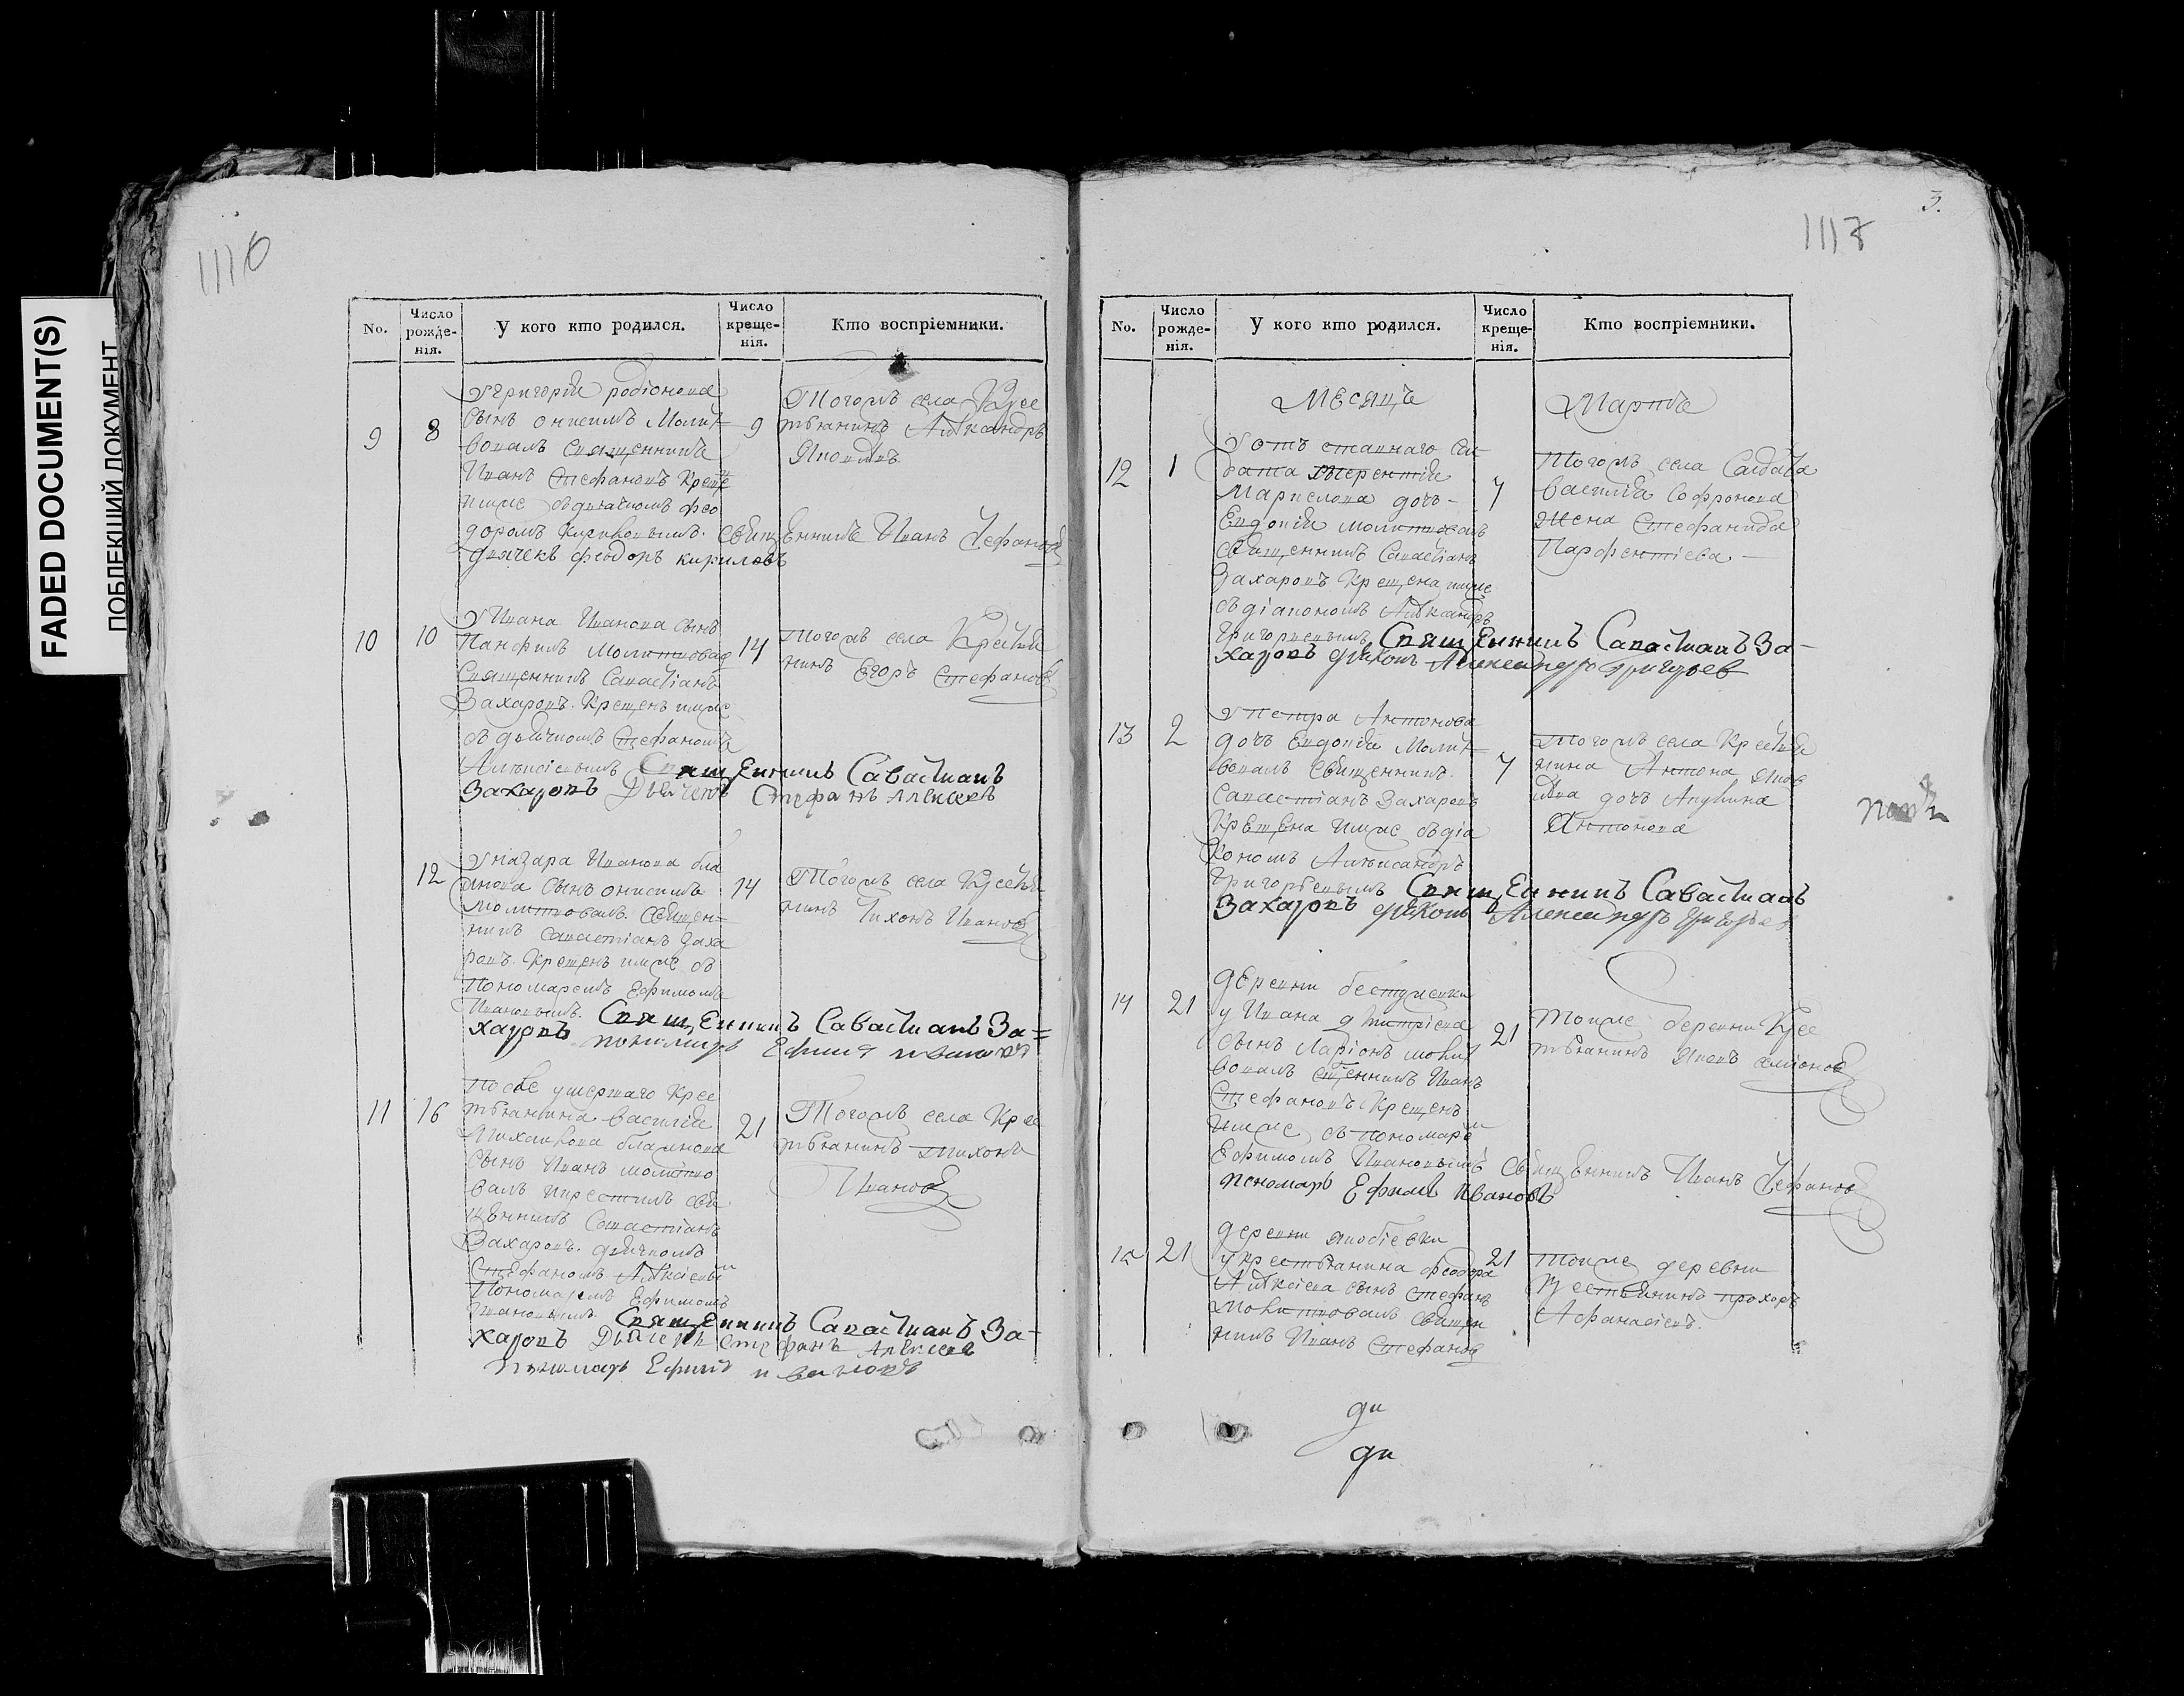 FADED DOCUMENT(S)
ПОБЛЕКШИЙ ДОКУМЕНТ
1116
No.
Число рожде-нія.
У кого кто родился.
Число креще-нія.
Кто воспріемники.
9
8
У григорія родіонова
сынъ онисимъ Молит
вовалъ Священникъ
Иванъ Стефановъ Креще
доромъ Кириловымъ. Священникъ Иванъ Стефановъ
дьячекъ феодоръ кириловъ
9
Тогожъ села Крес
тьянинъ Александръ
10
10
У Ивана Иванова сынъ
Панфилъ Молитвовал
Священникъ Савастіанъ
Захаровъ. Крещенъ имже
съ дьячкомъ Стефаномъ
Алексіевымъ Священникъ Савастианъ
Захаровъ Дьячекъ Стефанъ Алексеев
14
Тогожъ села Крестья
нинъ Егоръ Стефановъ
12
У назара Иванова бла
инова сынъ онисимъ
молитвовалъ. Священ-
никъ савастіанъ Заха
ровъ. Крещенъ имже съ
Пономаремъ Ефимомъ
Ивановымъ. Священникъ Савастианъ За=
харовъ пономарь Ефимъ ивановъ
14
Тогожъ села Крестья
нинъ Тихонъ Ивановъ
11
16
После умершаго Крес
тьянина василія
Михаилова блаинова
сынъ Иванъ молитво
валъ икрестилъ свя
щенникъ Савастіанъ
Захаровъ. дьячкомъ
Стефаномъ Алексіевым
Пономаремъ Ефимомъ
Ивановымъ. Священникъ Савастианъ За-
харовъ Дьячекъ стефанъ Алексеев
Пономарь Ефимъ ивановъ
21
Тогожъ села Крес
тьянинъ тихонъ
Ивановъ
3.
1117
No.
Число рожде-нія.
У кого кто родился.
Число креще-нія.
Кто воспріемники.
Месяцъ
Мартъ
12
1
У отъ ставнаго сал
дата терентія
дочь-
Евдокія молитвовалъ
священникъ Савастіанъ
Захаровъ Крещена имже
съ діакономъ Александръ
Григорьевымъ Священникъ Савастианъ За-
харовъ дьяконъ Александръ григорьев
7
Тогожъ села Салдата
василія Софронова
жена Стефанида
Парфентіева-
13
2
У петра Антонова
дочь Евдокія Молит
вовалъ Священникъ.
Савастіанъ Захаровъ
Крещена имже съ діа
кономъ Александръ
Григорьевымъ Священникъ Савастианъ
Захаровъ дьяконъ Александръ григорьев
7
Тогожъ села Крестья
нина Антона
дочь Акулина
Антонова
14
21
деревни
у Ивана дмитріева
сынъ Ларіонъ молит
вовалъ священникъ Иванъ
Стефановъ Крещенъ
имже съ пономарем
Ефимомъ Ивановымъ Священникъ Иванъ Стефановъ
пономарь Ефимъ Ивановъ
21
Тоиже деревни Крес
тьянинъ Яковъ
15
21
деревни
у крестьянина феодора
Алексіева сынъ стефанъ
Молитвовалъ Священ
никъ Иванъ Стефановъ
21
Тоиже деревни
Крестьянинъ прохоръ
Афанасіевъ.
ди
ди